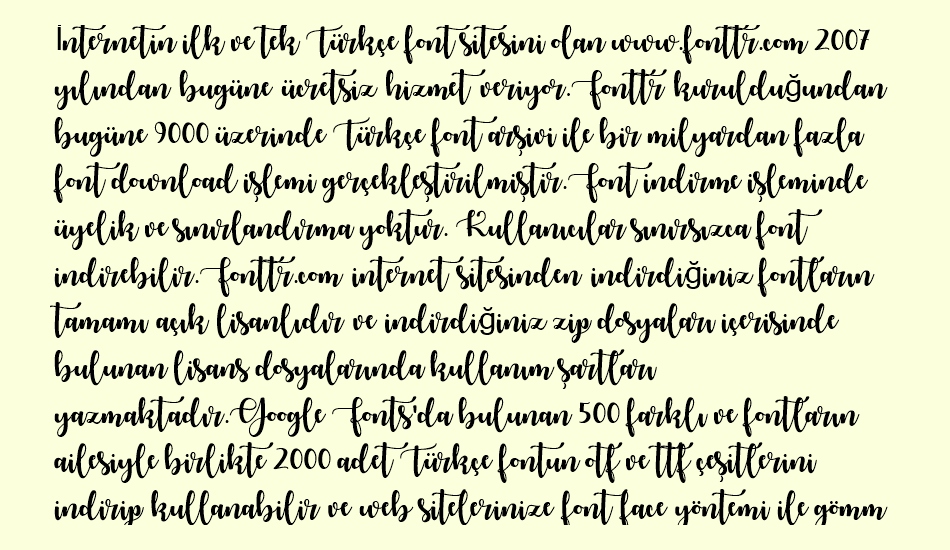 İnternetin ilk ve tek Türkçe font sitesini olan www.fonttr.com 2007
yılından bugüne ücretsiz hizmet veriyor.Fonttr kurulduğundan
bugüne 9000 üzerinde Türkçe font arşivi ile bir milyardan fazla
font download işlemi gerçekleştirilmiştir.Font indirme işleminde
üyelik ve sınırlandırma yoktur. Kullanıcılar sınırsızca font
indirebilir.Fonttr.com internet sitesinden indirdiğiniz fontların
tamamı açık lisanlıdır ve indirdiğiniz zip dosyaları içerisinde
bulunan lisans dosyalarında kullanım şartları
yazmaktadır.Google Fonts'da bulunan 500 farklı ve fontların
ailesiyle birlikte 2000 adet Türkçe fontun otf ve ttf çeşitlerini
indirip kullanabilir ve web sitelerinize font face yöntemi ile gömm